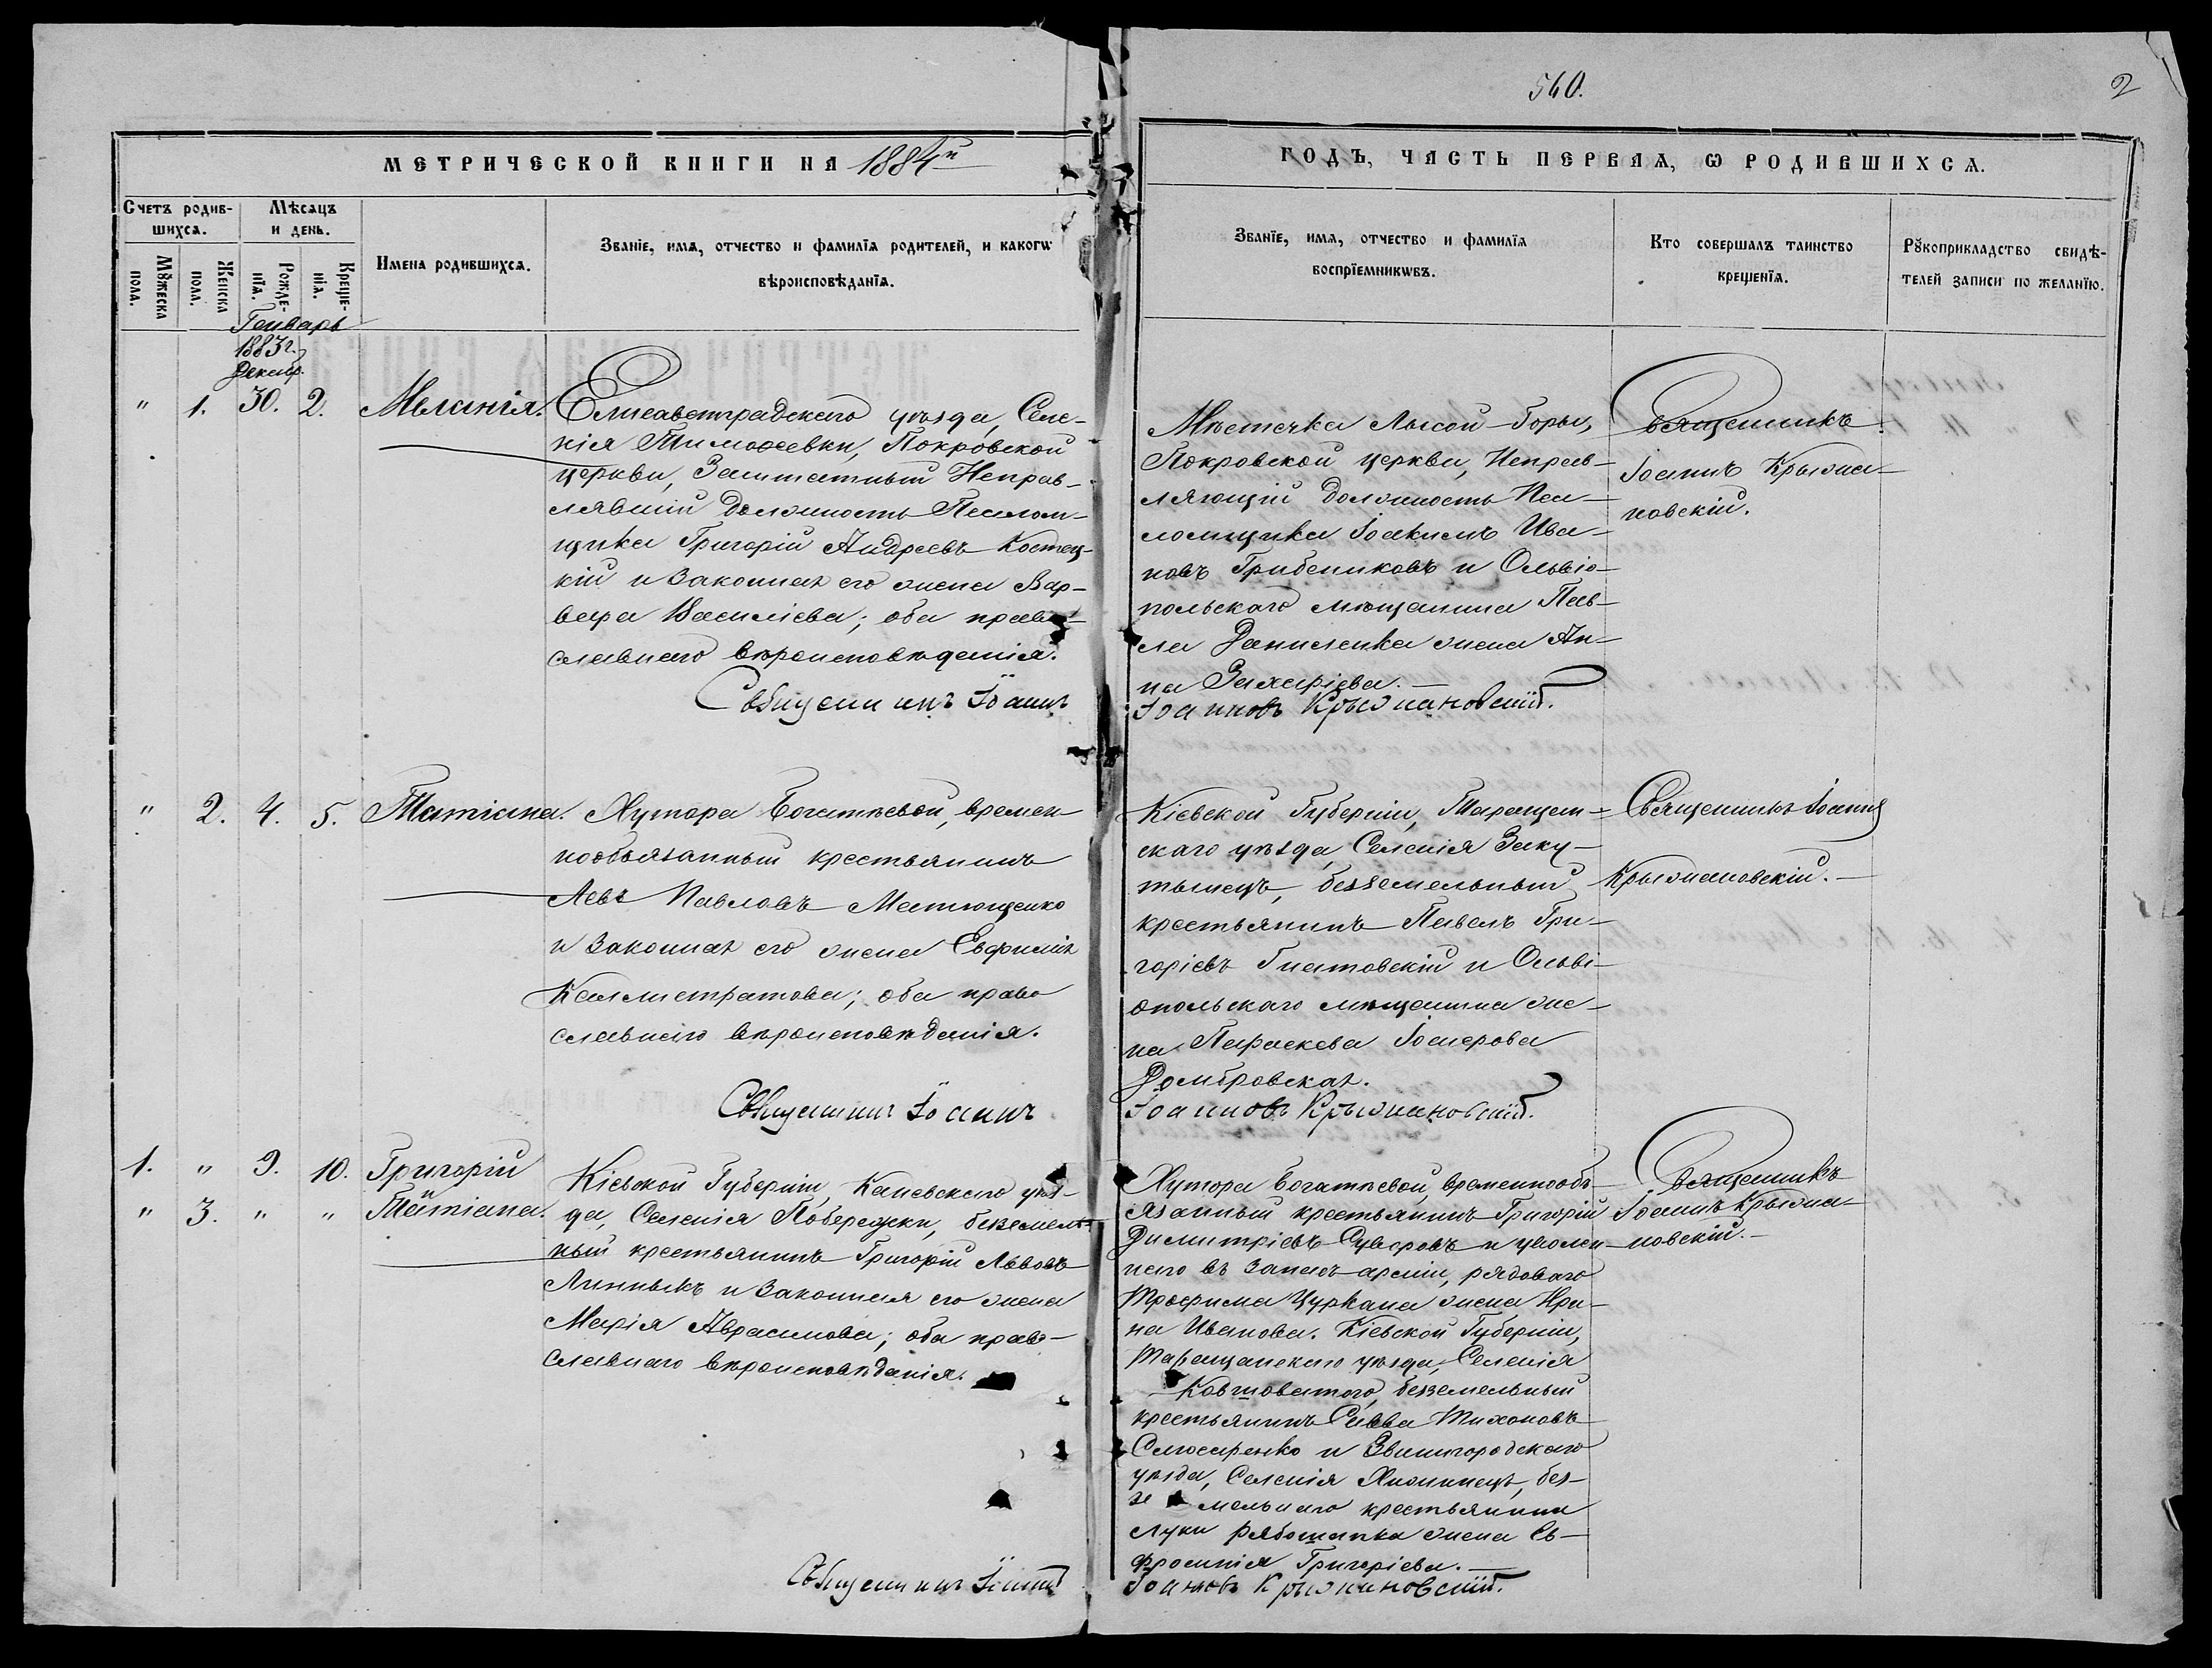 540.
2
МЕТРИЧЕСКОЙ КНИГИ НА 1884й
ГОДЪ, ЧАСТЬ ПЕРВАЯ, Ѡ РОДИВШИХСѦ.
Счетъ родив-
шихсѧ.
Мѣсѧцъ
и день.
Мꙋжеска
пола.
Женска
пола.
Рожде-
нїѧ.
Креще-
нїѧ.
Имена родившихсѧ.
Званїе, имѧ, отчество и фамилїѧ родителей, и какогѡ
вѣроисповѣданїѧ.
Званїе, имѧ, отчество и фамилїѧ
воспрїемникѡвъ.
Кто совершалъ таинство
крещенїѧ.
Рꙋкоприкладство свидѣ-
телей записи по желанїю.
Генварь
1883 г.
Декабр.
" 1. 30. 2. Меланія.
Елисаветградскаго уѣзда, Селе-
нія Тимоѳеевки, Покровской
церкви, Заштатный Исправ-
лявшій должность Псалом-
щика Григорій Андреевъ Костец-
кій и законная его жена Вар-
вара Василіева; оба право-
славнаго вѣроисповѣданія.
Священникъ Іоаннъ
Мѣстечка Лысой-Горы,
Покровской церкви, Исправ-
ляющій должность Пса-
ломщика Іоакимъ Ива-
новъ Грибениковъ и Ольвіо-
польскаго мѣщанина Пав-
ла Даниленка жена Ан-
на Захаріева.
Іоанновъ Крыжановскій.
Священникъ
Іоаннъ Крыжа-
новскій.
" 2. 4. 5. Татіана.
Хутора Богатѣевой, времен-
нообязанный крестьянинъ
Левъ Павловъ Матющенко
и законная его жена Евфимія
Каллистратова; оба право
славнаго вѣроисповѣданія.
Священникъ Іоаннъ
Кіевской Губерніи, Таращан-
скаго уѣзда, Селенія Заку-
тынецъ, безземельный
крестьянинъ Павелъ Гри-
горіевъ Гнатовскій и Ольві-
опольскаго мѣщанина же-
на Параскева
Домбровская.
Іоанновъ Крыжановскій.
Священникъ Іоаннъ
Крыжановскій.
1. " 9. 10. Григорій
" 3. " " Татіана.
Кіевской Губерніи, Каневскаго уѣз-
да, Селенія Побережки, безземель-
ный крестьянинъ Григорій Львовъ
и законная его жена
Марія Аврамова; оба право-
славнаго вѣроисповѣданія.
Священникъ Іоаннъ
Хутора Богатѣевой, временнооб-
язанный крестьянинъ Григорій
Димитріевъ Суверовъ и уволен-
наго въ запасъ арміи, рядоваго
Трофима Цуркана жена Ири-
на Иванова. Кіевской Губерніи,
Таращанскаго уѣзда, Селенія
Ковшоватого, безземельный
крестьянинъ Савва Тихоновъ
Слюсаренко и Звенигородскаго
уѣзда, Селенія Хижинецъ, без-
земельнаго крестьянина
Луки Рябошапка жена Ев-
фросинія Григоріева.
Іоанновъ Крыжановскій.
Священникъ
Іоаннъ Крыжа-
новскій.